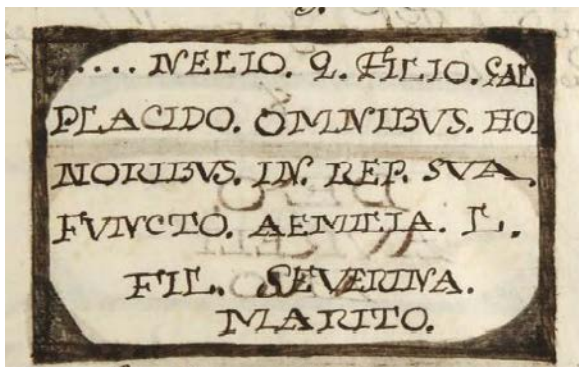 .... NELIO. Q. FILIO. GAL
PLACIDO. OMNIBVS. HO
NORIBVS. IN. REP. SVA.
FVNCTO. AEMILIA. L.
FIL. SEVERINA.
MARITO.